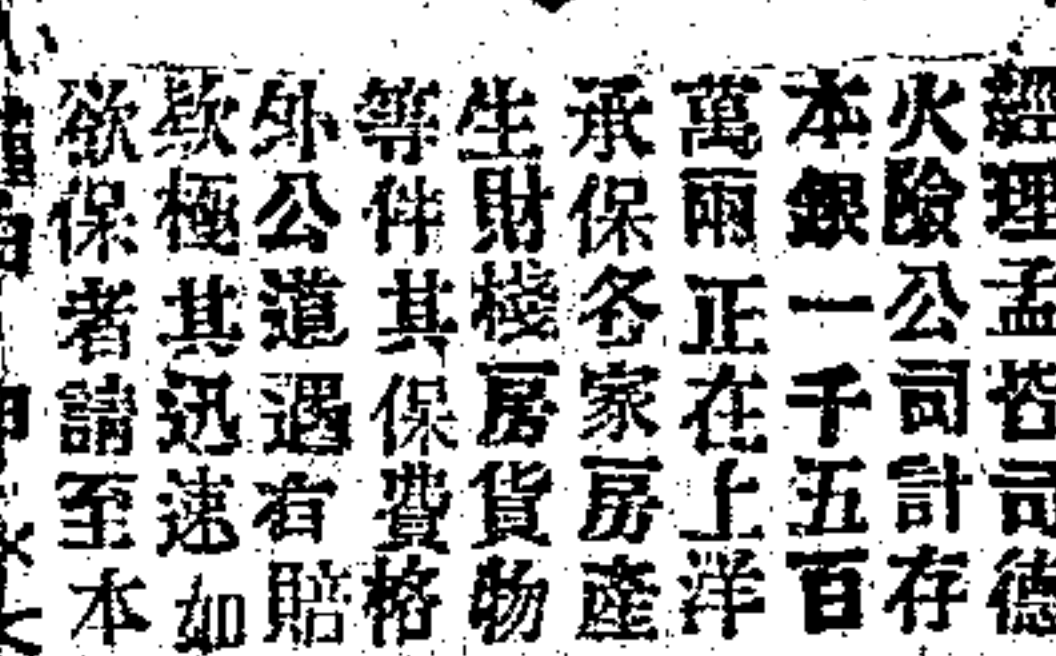 經理孟茖司德
火險公司計存
本銀一千五百
萬兩正在上洋
承保各家房產
生財棧房貨物
等件其保費格
外公道遇有賠
欵極其迅速如
欲保者請至本